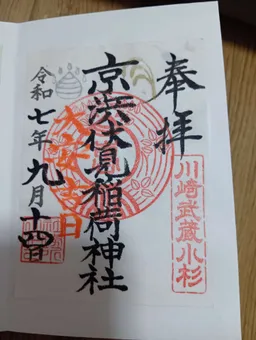 奉拝
川崎武蔵小杉
京浜伏見稲荷神社
大安吉日
令和七年九月十四日